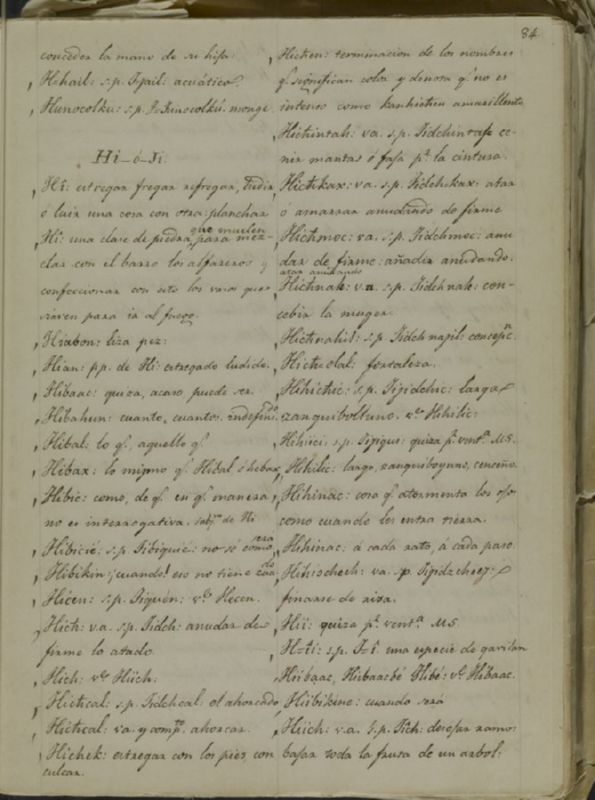 84
conceder la mano de su hija.
Hehail: s.p. Jejail: acuático.
Hunocolku: s.p. monge.
Hi_ó_Ji.
Hi: estregar fregar refregar, ludir
ó luir una cosa con otra: planchar
Hi: una clase de piedra que muelen para mez-
clar con el barro los alfareros y
confeccionar con esto los vasos que
sirven para ir al fuego.
Hiabon: liza pez:
Hian: pp. de Hi: estregado ludido.
Hibaac: quiza, acaso puede ser.
Hibahun: cuanto, cuantos. indefindo.
Hibal: lo q.e, aquello q.e
Hibax: lo mismo q.e Hibal ó hebax,
Hibic: como, de q.e en q.e manera
no es interrogativa. subj.vo de Hi
Hibicic: s.p. Jibiquic: no sé como sera
Hibikin: ¡cuando! eso no tiene cuando
Hicen: s.p. Jiquen: v.e Hecen.
Hich: v.a. s.p. Jidch: anudar de
firme lo atado.
Hich: v.e Hiich:
Hichcal: s.p. Jidchcal: el ahorcado
Hichcal: va. y comp.to ahorcar.
Hichek: estregar con los pies, con
culcar.
Hichen: terminacion de los nombres
q.e significan color y denota q.e no es
intenso como kanhichen amarillento
Hichintah: va. s.p. Jidchintaj: ce-
ñir mantas ó faja p.r la cintura.
Hichkax: va. s.p. Jidchkax: atar
ó amarrar anudando de firme
Hichmoc: va. s.p. Jidchmoc: anu
dar de firme: añadir anudando.
atar anudando
Hichnak: v.a. s.p. Jidchnak: con-
cebir la muger.
Hichnahil: s.p. Jidchnajil: concepn.
Hichcolal: fortaleza.
Hihichic: s.p. Jijidchic: largo
zanquiboltuno. v.e Hihilic:
Hihici: s.p. Jijiqui: quiza p.r vent.a MS.
Hihilic: largo, zanquiboyuno, cenceño.
Hihinac: cosa q.e atormenta los ojos
como cuando les entra tierra.
Hihinac: á cada rato, á cada paso.
Hihiochech: va. sp.
finarse de risa.
Hii: quiza p.r vent.a MS
H=ii: s.p. J=i una especie de gavilan
Hiibaac, Hiibaacbé Hibé: v.e Hibaac.
Hiibikine: cuando será
Hiich: v.a. s.p. Jich: desojar ramos:
bajar toda la fruta de un arbol: